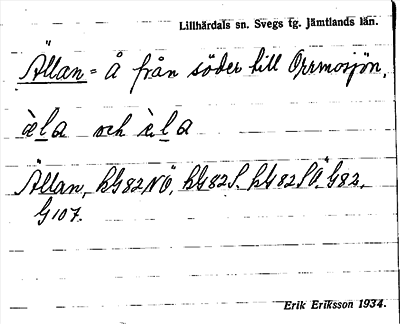 Lillhärdals sn. Svegs tg. Jämtlands län.
Ällan = Å från söder till Orrmosjön,
æ̀la och è.la
Ällan, hG82NÖ, hG82S. hG82SÖ, G82,
G107.
Erik Eriksson 1934.